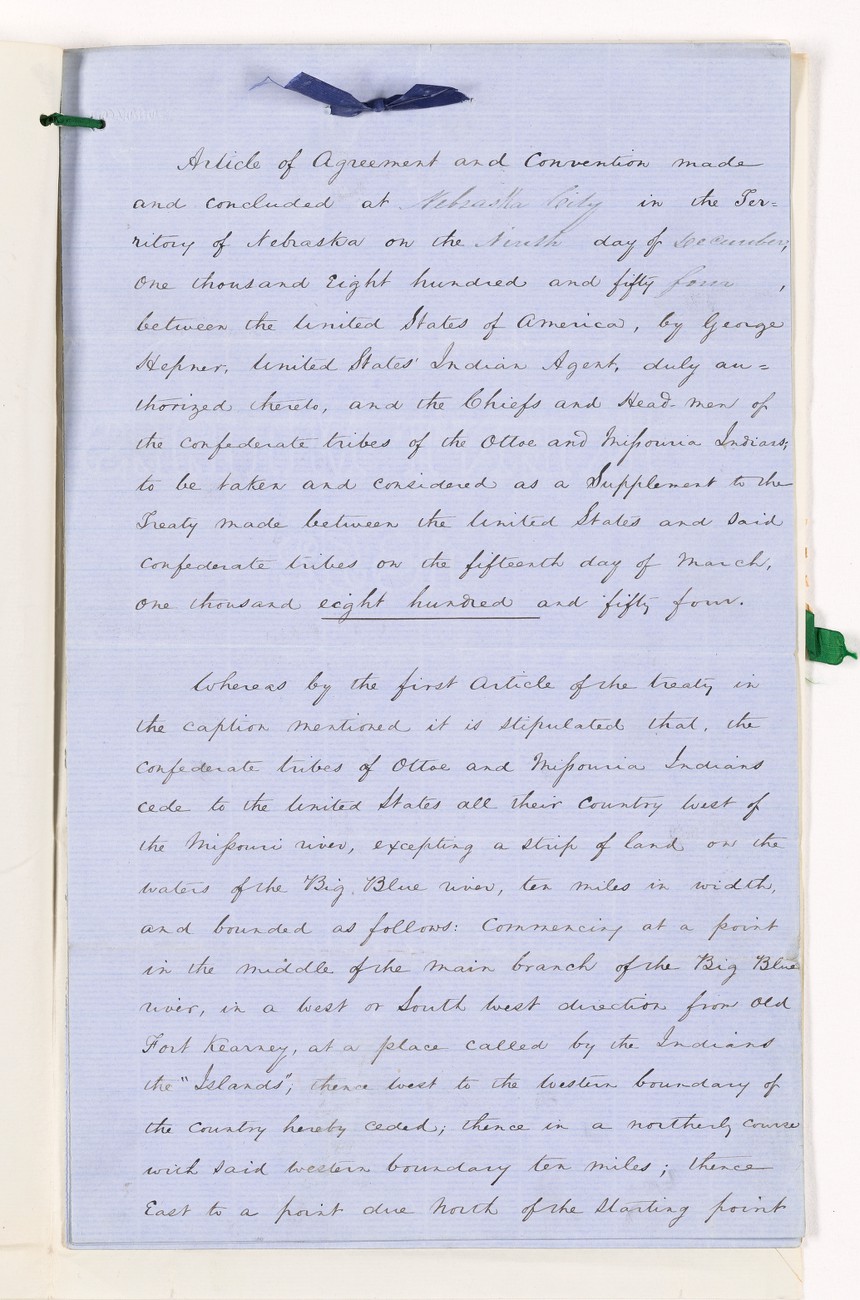 Article of Agreement and Convention made
and concluded at Nebraska City in the Ter=
ritory of Nebraska on the Ninth day of December,
One thousand Eight hundred and fifty four ,
between the United States of America, by George
Hepner, United States' Indian Agent, duly au=
thorized thereto, and the Chiefs and Head-men of
the confederate tribes of the Ottoe and Missouria Indians;
to be taken and considered as a Supplement to the
Treaty made between the United States and said
confederate tribes on the fifteenth day of March,
One thousand eight hundred and fifty four.
Whereas by the first Article of the treaty in
the caption mentioned it is stipulated that, the
confederate tribes of Ottoe and Missouria Indians
cede to the United States all their Country West of
the Missouri river, excepting a strip of land on the
waters of the Big Blue river, ten miles in width,
and bounded as follows: Commencing at a point
in the middle of the main branch of the Big Blue
river, in a West or South West direction from Old
Fort Kearney, at a place called by the Indians
the "Islands"; thence West to the Western boundary of
the Country hereby ceded; thence in a northerly course
with said Western boundary ten miles; thence
East to a point due North of the Starting point